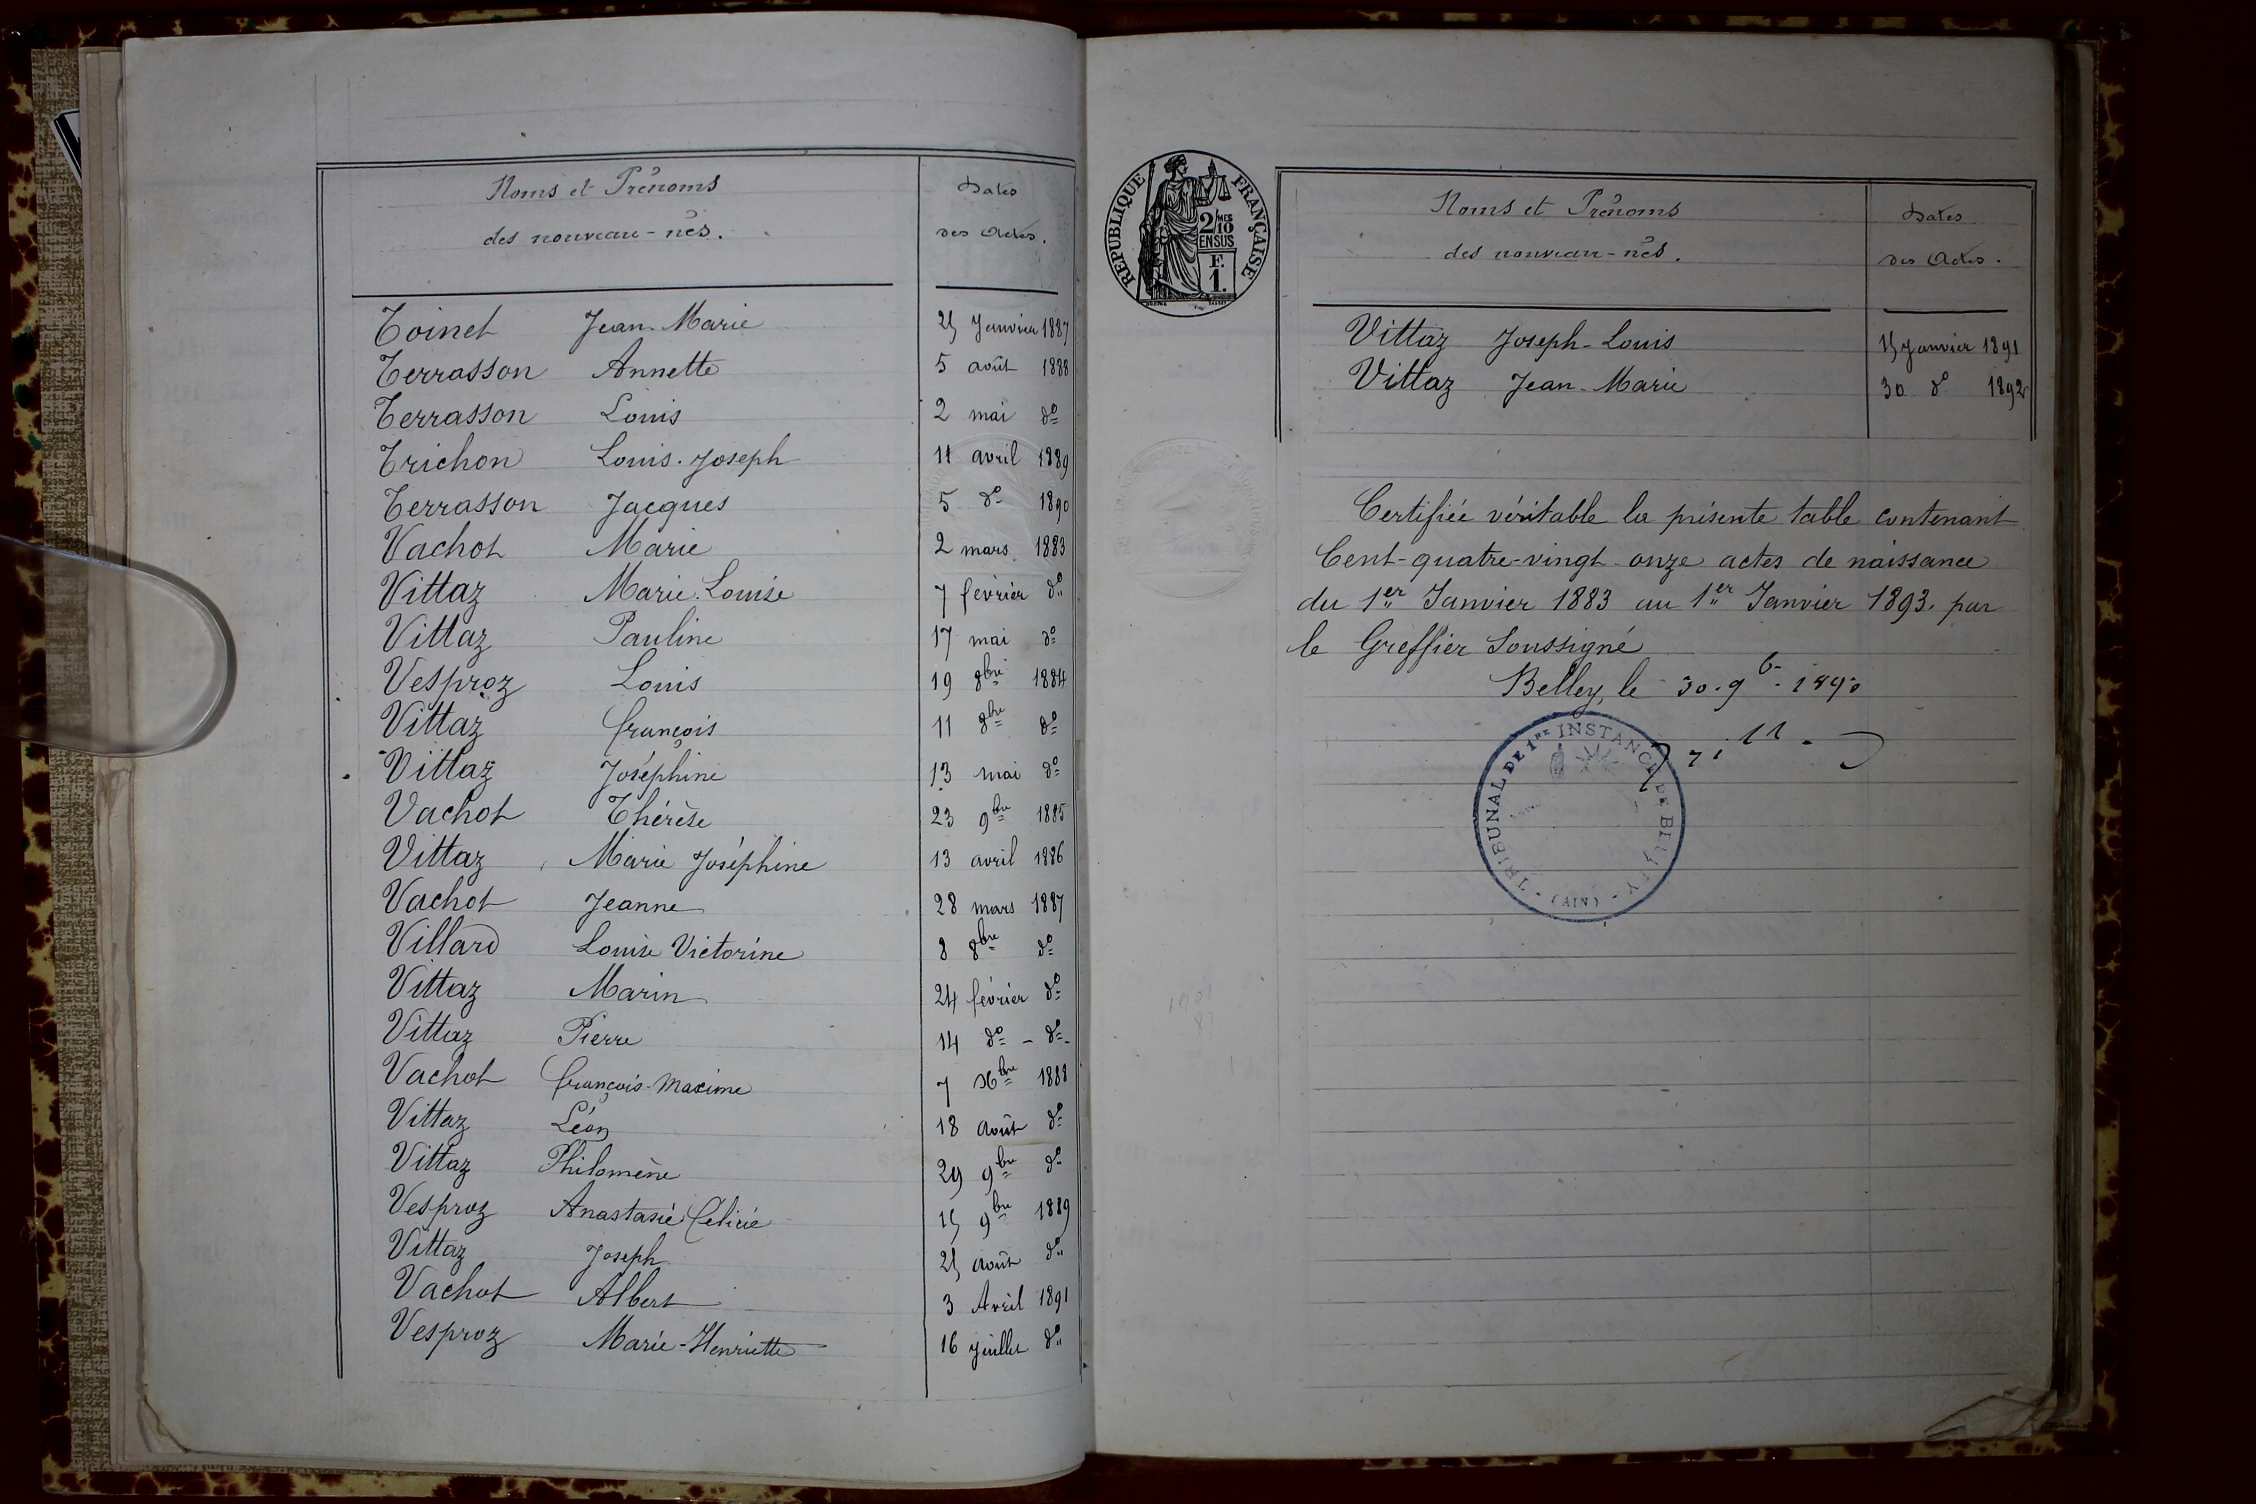 Noms et Prénoms
des nouveau-nés.
Dates
des Actes.
Toinet Jean-Marie 25 Janvier 1887
Terrasson Annette 5 août 1888
Terrasson Louis 2 mai do
Trichon Louis-Joseph 11 avril 1889
Terrasson Jacques 5 do 1890
Vachot Marie 2 mars 1883
Vittaz Marie-Louise 7 février do
Vittaz Pauline 17 mai do
Vesproz Louis 19 8bre 1884
Vittaz François 11 8bre do
Vittaz Joséphine 13 mai do
Vachot Thérèse 23 9bre 1885
Vittaz Marie Joséphine 13 avril 1886
Vachot Jeanne 28 mars 1887
Villard Louise Victorine 8 8bre do
Vittaz Marin 24 février do
Vittaz Pierre 14 do - do-
Vachot François-Maxime 7 Xbre 1888
Vittaz Léon 18 août do
Vittaz Philomène 29 9bre do
Vesproz Anastasie Félicie 15 9bre 1889
Vittaz Joseph 25 août do
Vachot Albert 3 Avril 1891
Vesproz Marie-Henriette 16 juillet do
RÉPUBLIQUE FRANÇAISE
2/10MES
EN SUS
F.
1.
Noms et Prénoms
des nouveau-nés.
Dates
des Actes.
Vittaz Joseph-Louis 15 Janvier 1891
Vittaz Jean-Marie 30 do 1892
Certifiée véritable la présente table contenant
Cent-quatre-vingt-onze actes de naissance
du 1er Janvier 1883 au 1er Janvier 1893. par
le Greffier Soussigné
Belley, le 30. 9b
TRIBUNAL DE 1RE INSTANCE DE BELLEY
(AIN)